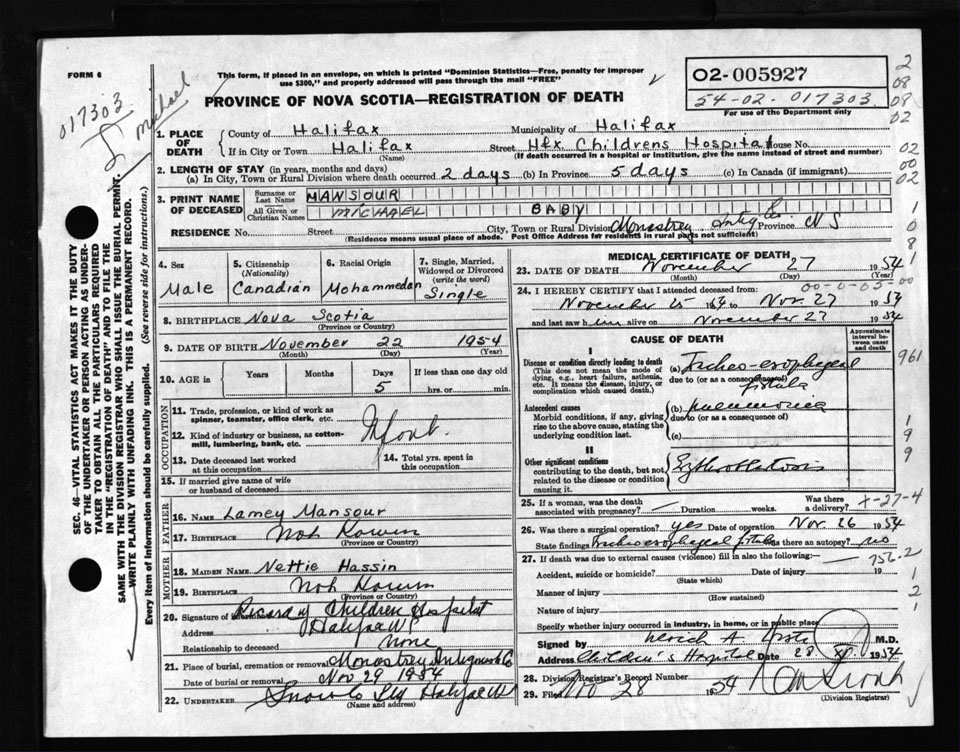 FORM 6
This form, if placed in an envelope, on which is printed "Dominion Statistics—Free, penalty for improper
use $300," and properly addressed will pass through the mail "FREE"
PROVINCE OF NOVA SCOTIA—REGISTRATION OF DEATH
O2-005927
54-02-017303
For use of the Department only
017303
Michael
2
08
08
02
1. PLACE OF DEATH
County of Halifax Municipality of Halifax
If in City or Town Halifax Street Hfx Childrens Hospital House No.
(Name) (If death occurred in a hospital or institution, give the name instead of street and number)
02
00
02
2. LENGTH OF STAY (in years, months and days)
(a) In City, Town or Rural Division where death occurred 2 days (b) In Province 5 days (c) In Canada (if immigrant)
3. PRINT NAME OF DECEASED
Surname or Last Name MANSOUR
All Given or Christian Names MICHAEL BABY
RESIDENCE No. Street City, Town or Rural Division Monastrey Province N S
(Residence means usual place of abode. Post Office Address for residents in rural parts not sufficient)
1
0
8
1
4. Sex
Male
5. Citizenship
(Nationality)
Canadian
6. Racial Origin
Mohammedan
7. Single, Married, Widowed or Divorced
(write the word)
Single
8. BIRTHPLACE Nova Scotia
(Province or Country)
9. DATE OF BIRTH November 22 1954
(Month) (Day) (Year)
10. AGE in Years Months Days If less than one day old
5 hrs. or min.
OCCUPATION
11. Trade, profession, or kind of work as
spinner, teamster, office clerk, etc.
12. Kind of industry or business, as cotton-
mill, lumbering, bank, etc.
Infant
13. Date deceased last worked
at this occupation
14. Total yrs. spent in
this occupation
15. If married give name of wife
or husband of deceased
FATHER
16. NAME Lamey Mansour
17. BIRTHPLACE Not Known
(Province or Country)
MOTHER
18. MAIDEN NAME Nettie Hassin
19. BIRTHPLACE Not Known
(Province or Country)
20. Signature of Children Hospital
Address Halifax
Relationship to deceased None
21. Place of burial, cremation or removal Monastrey Antigonish Co
Date of burial or removal Nov 29 1954
22. UNDERTAKER Snow Co Ltd Halifax
(Name and address)
MEDICAL CERTIFICATE OF DEATH
23. DATE OF DEATH November 27 1954
(Month) (Day) (Year)
24. I HEREBY CERTIFY that I attended deceased from: 00-0-05-00
November 25 1954 to Nov. 27 1954
and last saw him alive on November 27 1954
CAUSE OF DEATH
Approximate interval between onset and death
I
Disease or condition directly leading to death
(This does not mean the mode of
dying, e.g., heart failure, asthenia,
etc. It means the disease, injury, or
complication which caused death.)
(a) Tracheo-esophageal
due to (or as a consequence of)
fistula
961
Antecedent causes
Morbid conditions, if any, giving
rise to the above cause, stating the
underlying condition last.
(b) pneumonia
due to (or as a consequence of)
(c)
1
9
9
II
Other significant conditions
contributing to the death, but not
related to the disease or condition
causing it.
25. If a woman, was the death
associated with pregnancy? Duration weeks. Was there a delivery? X-27-4
26. Was there a surgical operation? yes Date of operation Nov. 26 1954
State findings Tracheo esophageal fistula Was there an autopsy? no
27. If death was due to external causes (violence) fill in also the following:
756.2
Accident, suicide or homicide? Date of injury 19
(State which)
Manner of injury
(How sustained)
Nature of injury
1
2
1
Specify whether injury occurred in industry, in home, or in public place
Signed by Ulrich A. M.D.
Address Children's Hospital Date 28 XI. 1954
28. Division Registrar's Record Number
29. Filed Nov 28 1954
(Division Registrar)
SEC. 46—VITAL STATISTICS ACT MAKES IT THE DUTY
OF THE UNDERTAKER OR PERSON ACTING AS UNDER-
TAKER TO OBTAIN ALL THE PARTICULARS REQUIRED
IN THE "REGISTRATION OF DEATH" AND TO FILE THE
SAME WITH THE DIVISION REGISTRAR WHO SHALL ISSUE THE BURIAL PERMIT.
WRITE PLAINLY WITH UNFADING INK. THIS IS A PERMANENT RECORD.
Every item of information should be carefully supplied. (See reverse side for instructions.)